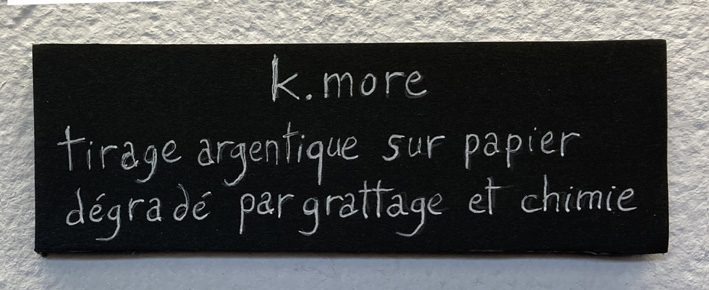 k.more
tirage argentique sur papier
dégradé par grattage et chimie